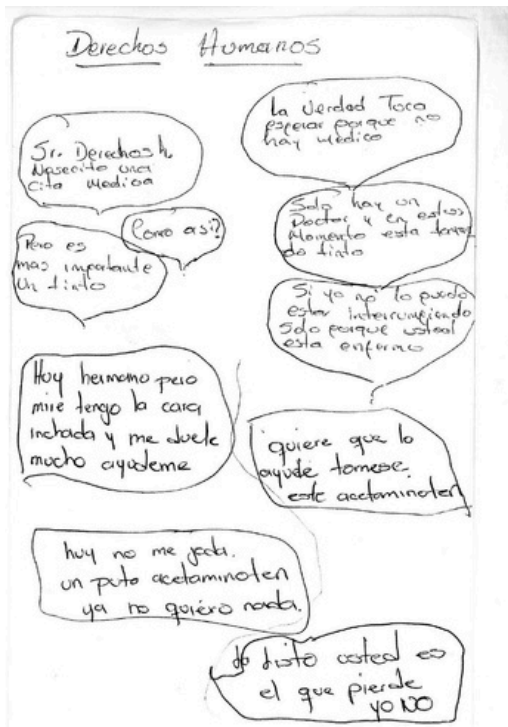 Derechos Humanos
Sr. Derechos h.
Nesecito una
cita medica
La verdad Toca
esperar porque no
hay medico
Como asi?
Solo hay un
Doctor y en estos
Momento esta toman
do tinto
Pero es
mas importante
Un tinto
Si yo no lo puedo
estar interrumpiendo
Solo porque usted
esta enfermo
Huy hermano pero
mire tengo la cara
inchada y me duele
mucho ayudeme
quiere que lo
ayude tomese
este acetaminofen
huy no me joda.
un puto acetaminofen
ya no quiero nada.
listo usted es
el que pierde
yo NO